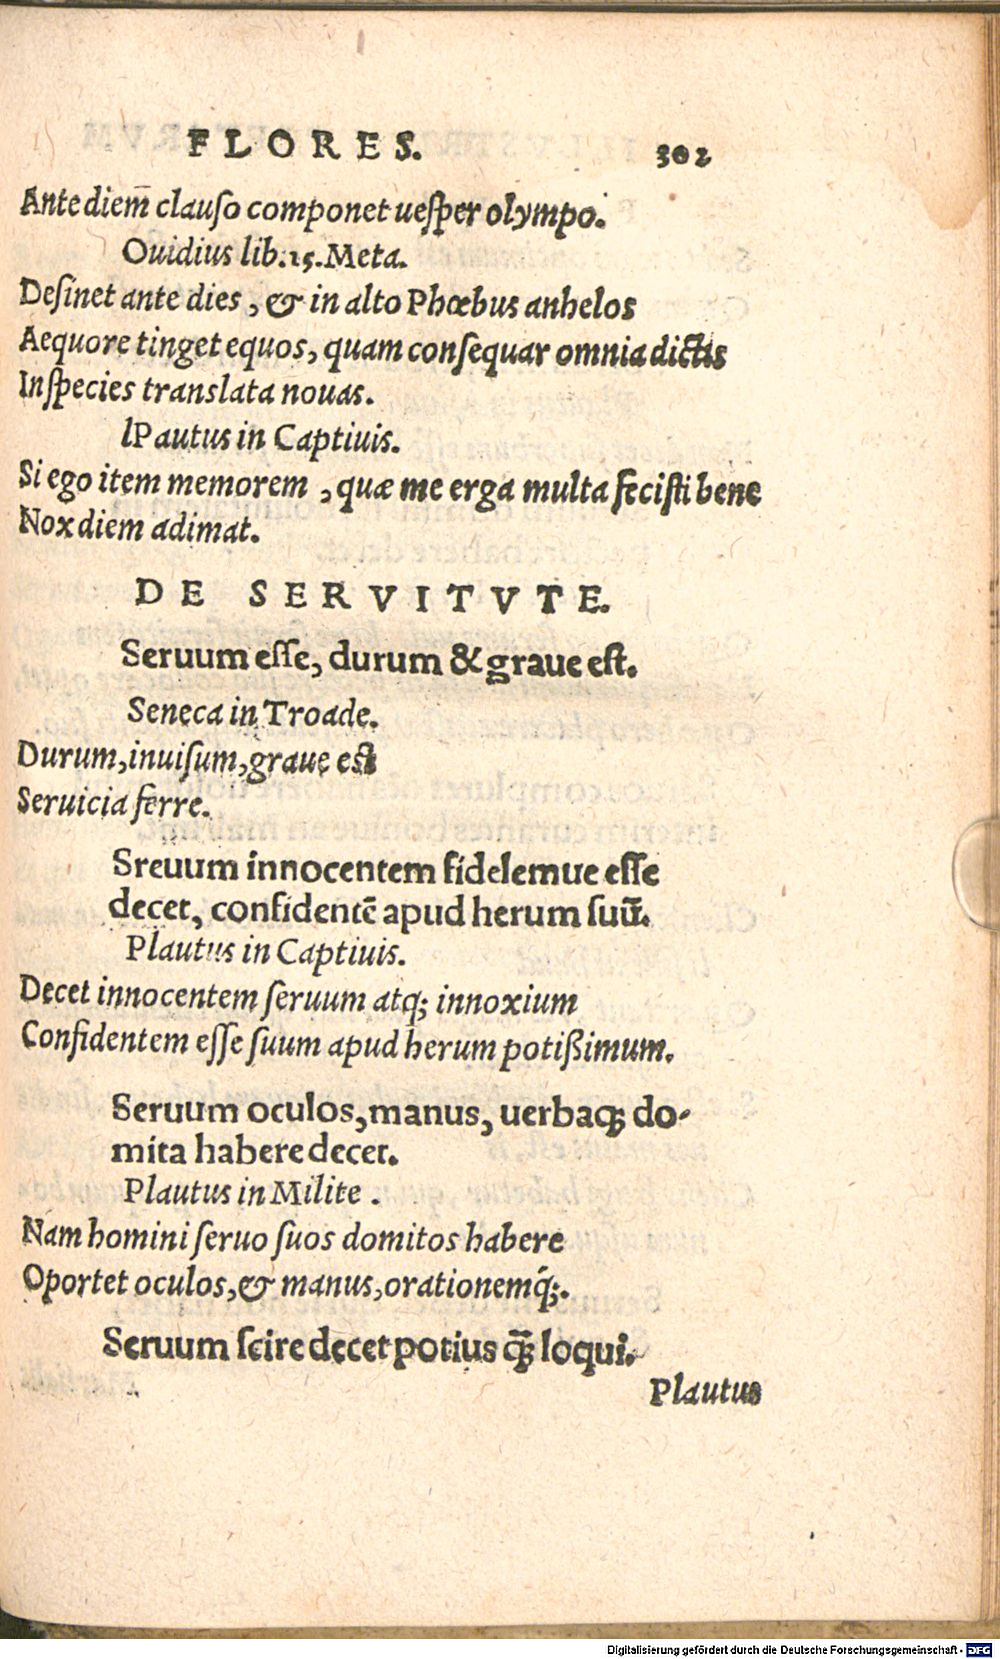 FLORES. 302
Ante diem̄ clauſo componet ueſper olympo.
Ouidius lib.15.Meta.
Deſinet ante dies, & in alto Phœbus anhelos
Aequore tinget equos, quam conſequar omnia dictis
Inſpecies translata nouas.
lPautus in Captiuis.
Si ego item memorem , quæ me erga multa feciſti bene
Nox diem adimat.
DE SERVITVTE.
Seruum eſſe, durum & graue eſt.
Seneca in Troade.
Durum,inuiſum,graue eſt
Seruicia ferre.
Sreuum innocentem fidelemue eſſe
decet, confidentē apud herum ſuū.
Plautus in Captiuis.
Decet innocentem ſeruum atq; innoxium
Confidentem eſſe ſuum apud herum potißimum.
Seruum oculos,manus, uerbaq; do-
mita habere decet.
Plautus in Milite .
Nam homini ſeruo ſuos domitos habere
Oportet oculos,& manus,orationemq́;.
Seruum ſcire decet potius q̄; loqui.
Plautus
Digitalisierung gefördert durch die Deutsche Forschungsgemeinschaft - DFG